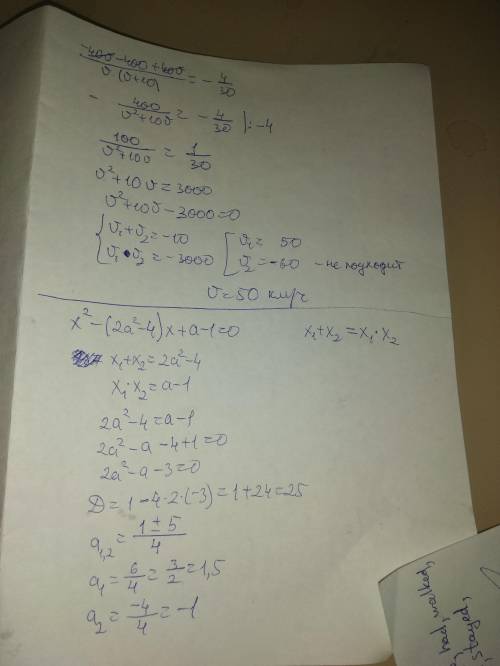 (-400v-400+400v)/(v(v+10)) = -4/30
- 400/(v²+10v) = -4/30 |:-4
100/(v²+10v) = 1/30
v²+10v=3000
v²+10v-3000=0
{ v₁+v₂=-10 [ v₁= 50
v₁•v₂=-3000 v₂=-60 - не подходит
v=50 км/ч
x²-(2a²-4)x+a-1=0 x₁+x₂=x₁·x₂
x₁+x₂=2a²-4
x₁·x₂=a-1
2a²-4=a-1
2a²-a-4+1=0
2a²-a-3=0
D=1-4·2·(-3)=1+24=25
a₁,₂=(1±5)/4
a₁=6/4=3/2=1,5
a₂=-4/4=-1
had, walked,
stayed,